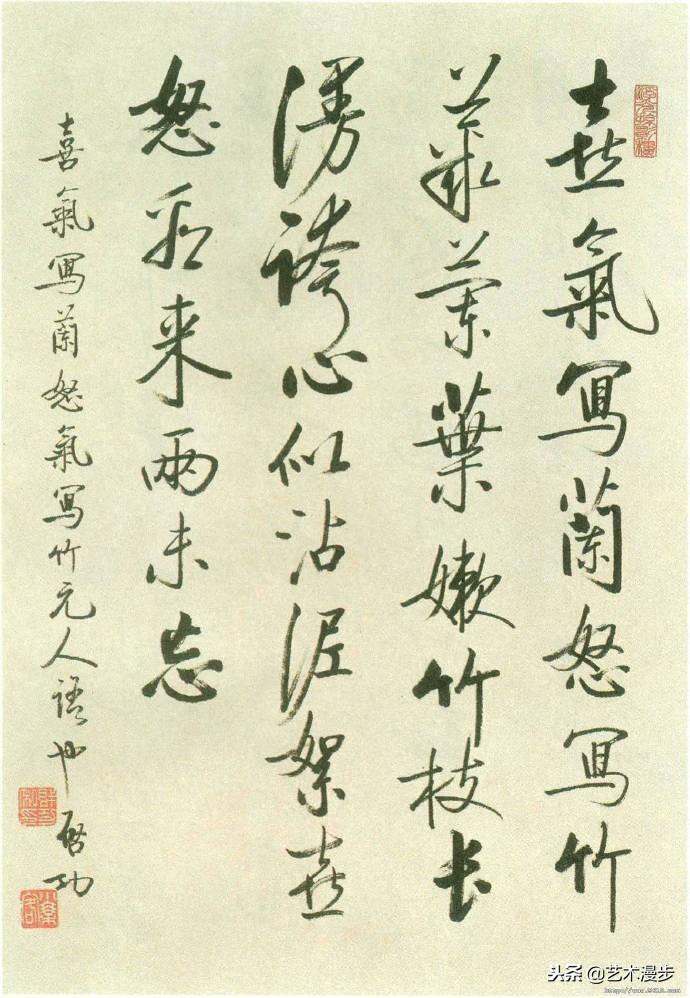 喜氣寫蘭怒寫竹
叢蘭葉嫩竹枝长
漫誇心似沾泥絮喜
怒看来兩未忘
喜氣寫蘭怒氣寫竹元人語也 启功
头条 @艺术漫步